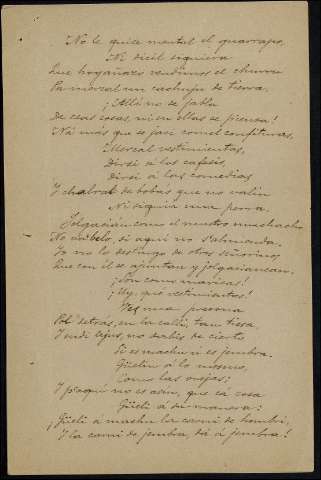 No le quite mental el guarrapo,
Ni dicil siquiera
Que hogañazo vendimos el churru
Pa mercal un cachuju de tierra.
¡Allí no se jabla
De esas cosas, ni en ellas se piensa!
Ná más que se jaci comel confituras,
Mercal vestimientas,
Dirsi á los cafesis
Dirsi á las comedias
Y chalral de bobás que no valin
Ni siquiá una perra.
Jolgacián como el nuestro muchacho
No de otros señorinos
Que con él se ajuntan y jolgacianean.
¡Son como maricas!
¡Uy, qué vestimientas!
Ves una presona
Pol detrás, en la calli, tan tiesa
Y endi lejus, no sabis de cierto
Si es machu u es jembra.
Güelin á lo mesmo,
Como las ovejas;
Y p'aquí no es asín, que ca cosa
Güeli á su manera:
¡Güeli á machu la carni de hombri,
Y la carni de jembra, dá á jembra!